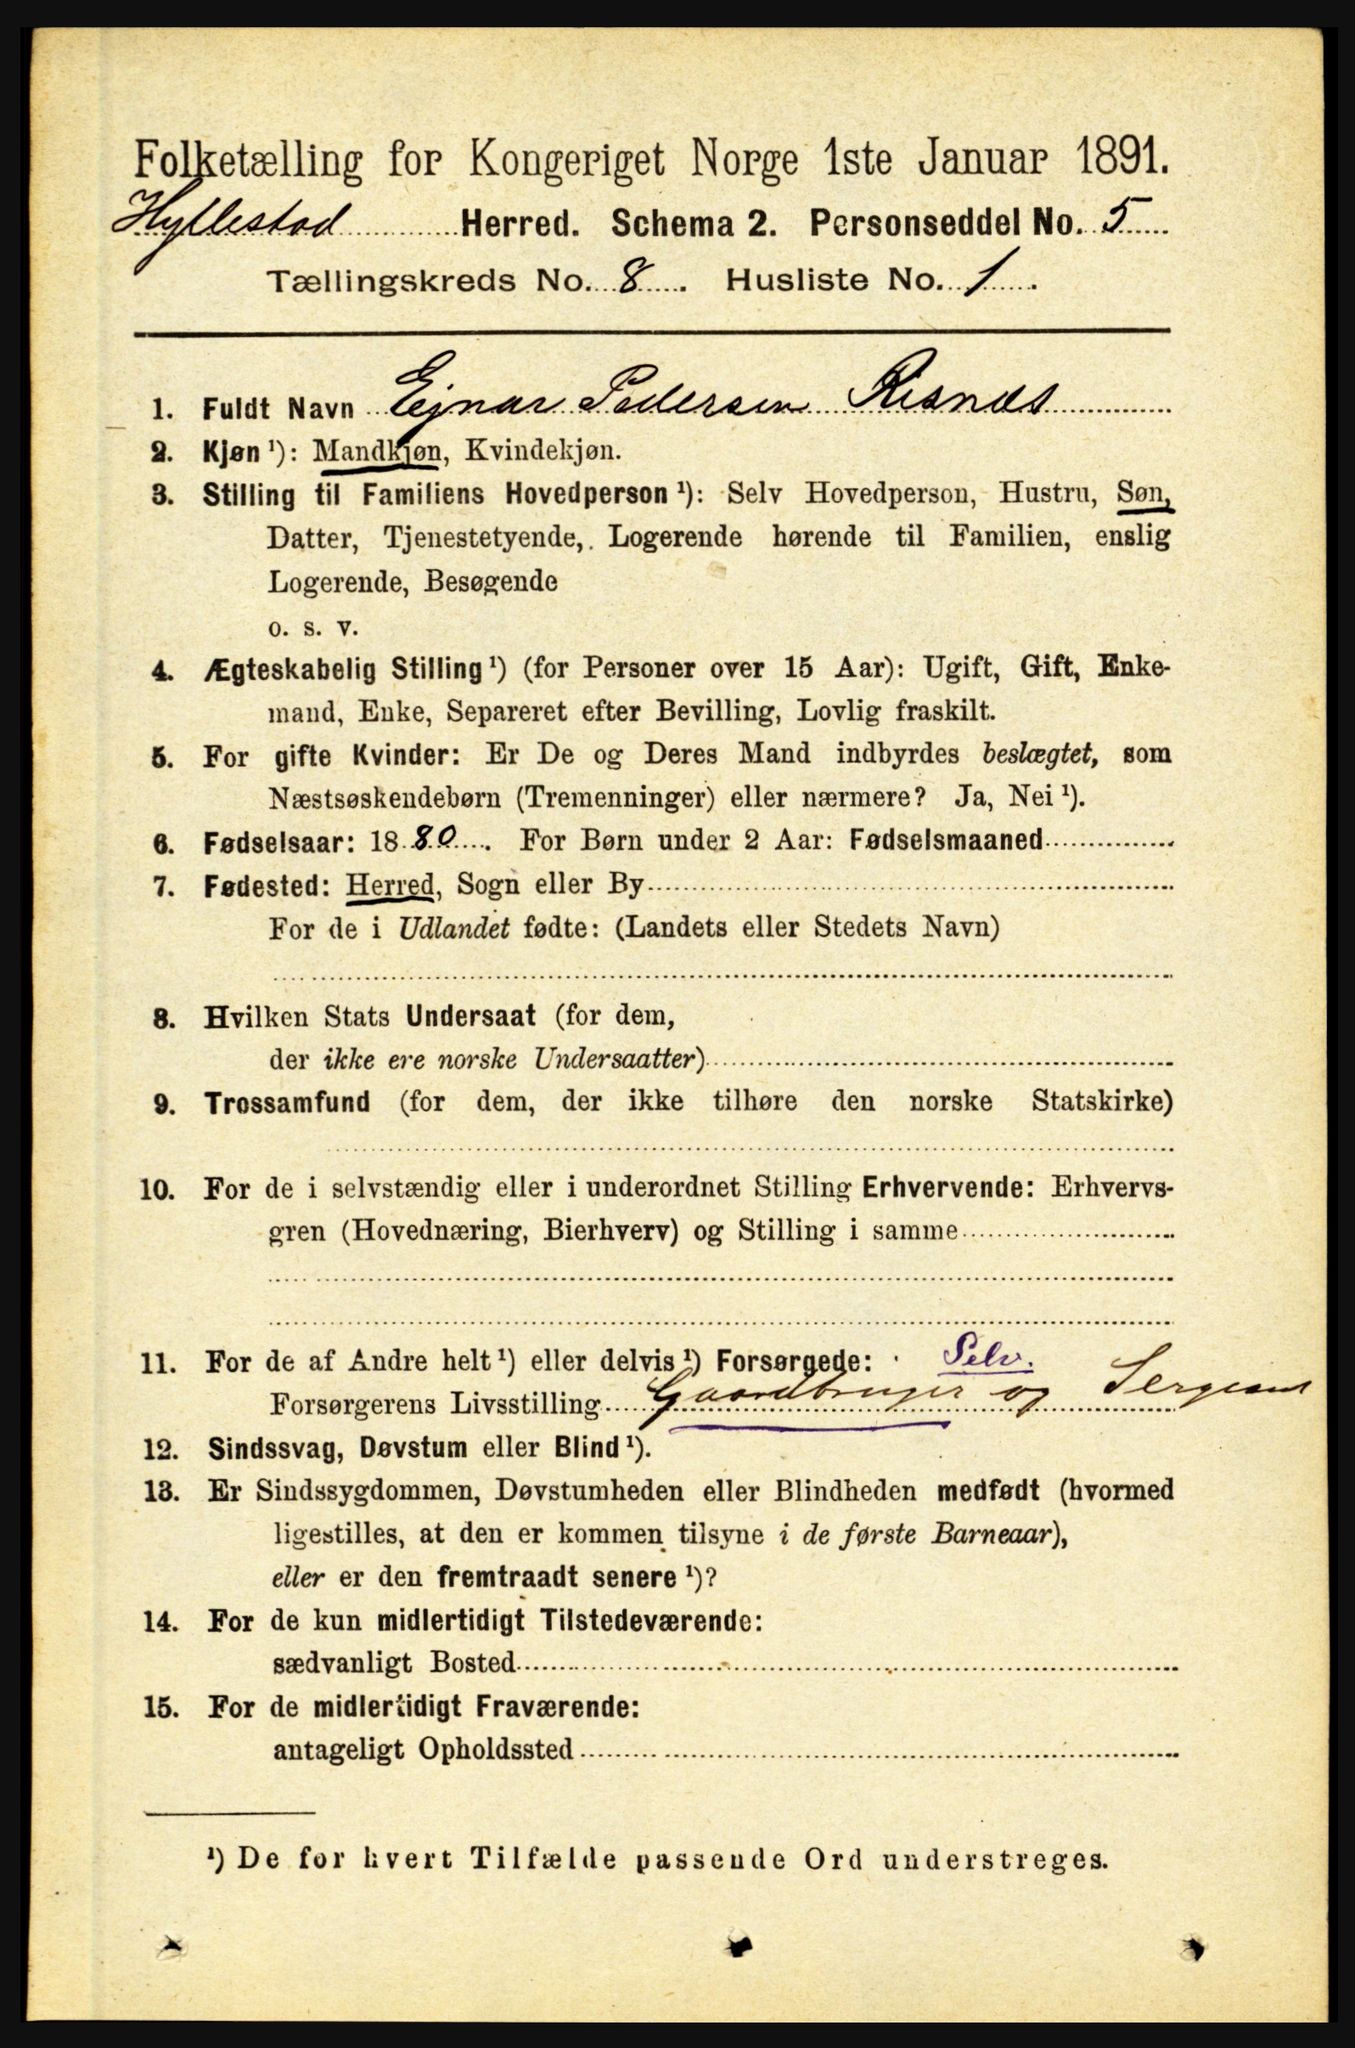 Folketælling for Kongeriget Norge 1ste Januar 1891.
Hyllestad Herred. Schema 2. Personseddel No. 5
Tællingskreds No. 8. Husliste No. 1.
1. Fuldt Navn Ejnar Pedersen Risnæs
2. Kjøn ¹): Mandkjøn, Kvindekjøn.
3. Stilling til Familiens Hovedperson ¹): Selv Hovedperson, Hustru, Søn,
Datter, Tjenestetyende, Logerende hørende til Familien, enslig
Logerende, Besøgende
o. s. v.
4. Ægteskabelig Stilling ¹) (for Personer over 15 Aar): Ugift, Gift, Enke-
mand, Enke, Separeret efter Bevilling, Lovlig fraskilt.
5. For gifte Kvinder: Er De og Deres Mand indbyrdes beslægtet, som
Næstsøskendebørn (Tremenninger) eller nærmere? Ja, Nei ¹).
6. Fødselsaar: 1880. For Børn under 2 Aar: Fødselsmaaned
7. Fødested: Herred, Sogn eller By
For de i Udlandet fødte: (Landets eller Stedets Navn)
8. Hvilken Stats Undersaat (for dem,
der ikke ere norske Undersaatter)
9. Trossamfund (for dem, der ikke tilhøre den norske Statskirke)
10. For de i selvstændig eller i underordnet Stilling Erhvervende: Erhvervs-
gren (Hovednæring, Bierhverv) og Stilling i samme
11. For de af Andre helt ¹) eller delvis ¹) Forsørgede: Selv.
Forsørgerens Livsstilling Gaardbruger og Sergeant
12. Sindssvag, Døvstum eller Blind ¹).
13. Er Sindssygdommen, Døvstumheden eller Blindheden medfødt (hvormed
ligestilles, at den er kommen tilsyne i de første Barneaar),
eller er den fremtraadt senere ¹)?
14. For de kun midlertidigt Tilstedeværende:
sædvanligt Bosted
15. For de midlertidigt Fraværende:
antageligt Opholdssted
¹) De for hvert Tilfælde passende Ord understreges.